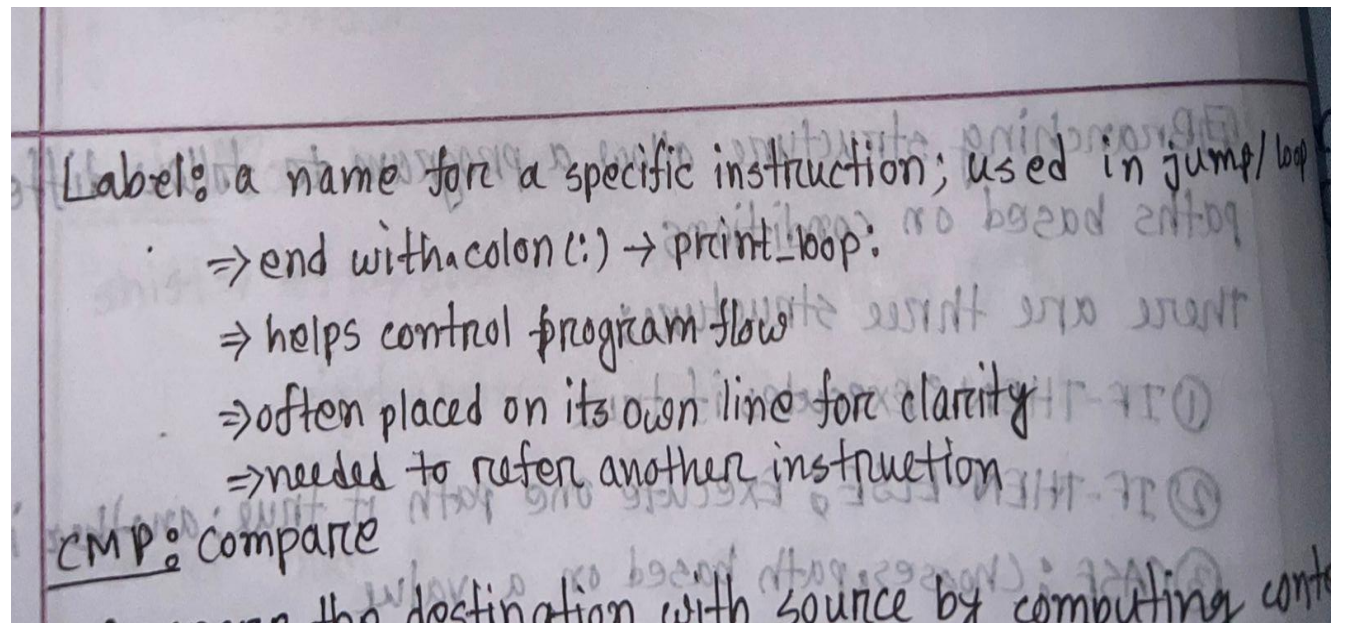 Label: a name for a specific instruction; used in jump/loop
⇒ end with a colon (:) → print_loop:
⇒ helps control program flow
⇒ often placed on its own line for clarity
⇒ needed to refer another instruction
CMP: compare
the destination with source by computing